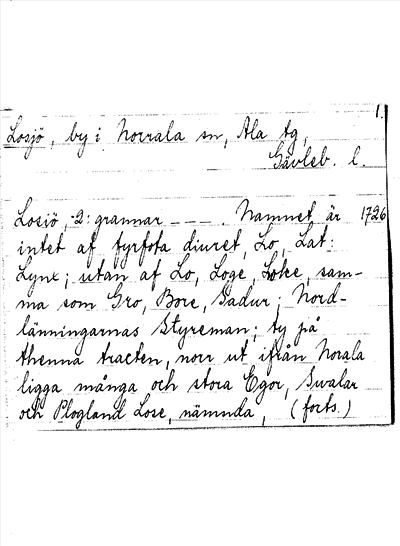 1.
Losjö, by i Norrala sn, Ala tg,
Gävleb. l.
Losiö, 2: grannar - - - . Namnet är 1726
intet af fyrfota diuret, Lo, Lat:
Lynx; utan af Lo, Loge, Loke, sam-
ma som Gro, Bore, Gadur; Nord-
länningarnas Styreman; ty på
thenna tracten, norr ut ifrån Norala
ligga många och stora Egor, Swalar
och Plogland Lose, nämnda, (forts.)